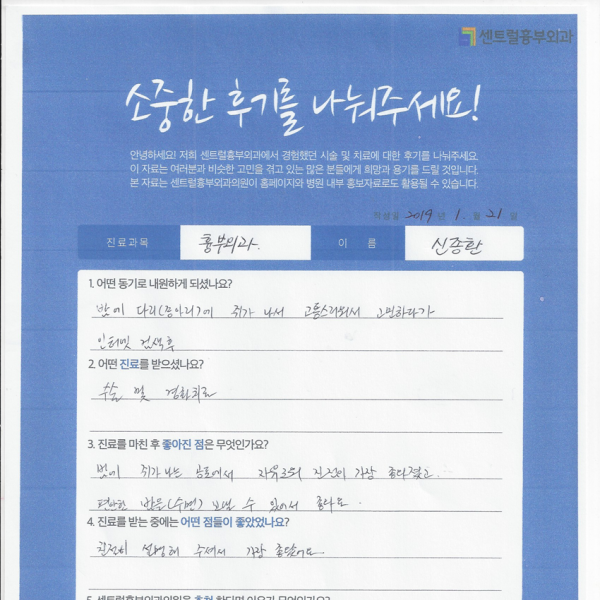 센트럴흉부외과
소중한 후기를 나눠주세요!
안녕하세요! 저희 센트럴흉부외과에서 경험했던 시술 및 치료에 대한 후기를 나눠주세요
이 자료는 여러분과 비슷한 고민을 겪고 있는 많은 분들에게 희망과 용기를 드릴 것입니다.
본 자료는 센트럴흉부외과의원이 홈페이지와 병원 내부 홍보자료로도 활용될 수 있습니다.
작성일 2019 년 1. 월 21 일
진료과목 흉부외과. 이 름 신종환
1. 어떤 동기로 내원하게 되셨나요?
밤에 다리(종아리)에 쥐가 나서 고통스러워서 고민하다가
인터넷 검색후
2. 어떤 진료를 받으셨나요?
수술 및 경화치료
3. 진료를 마친 후 좋아진 점은 무엇인가요?
밤에 쥐가 나는 고통에서 자유로워 진것이 가장 좋아졌고.
편안한 밤을(수면) 보낼 수 있어서 좋아요.
4. 진료를 받는 중에는 어떤 점들이 좋았었나요?
친절히 설명해 주셔서 가장 좋았어요.
5. 센트럴흉부외과의원을 추천 한다면 이유가 무엇인가요?